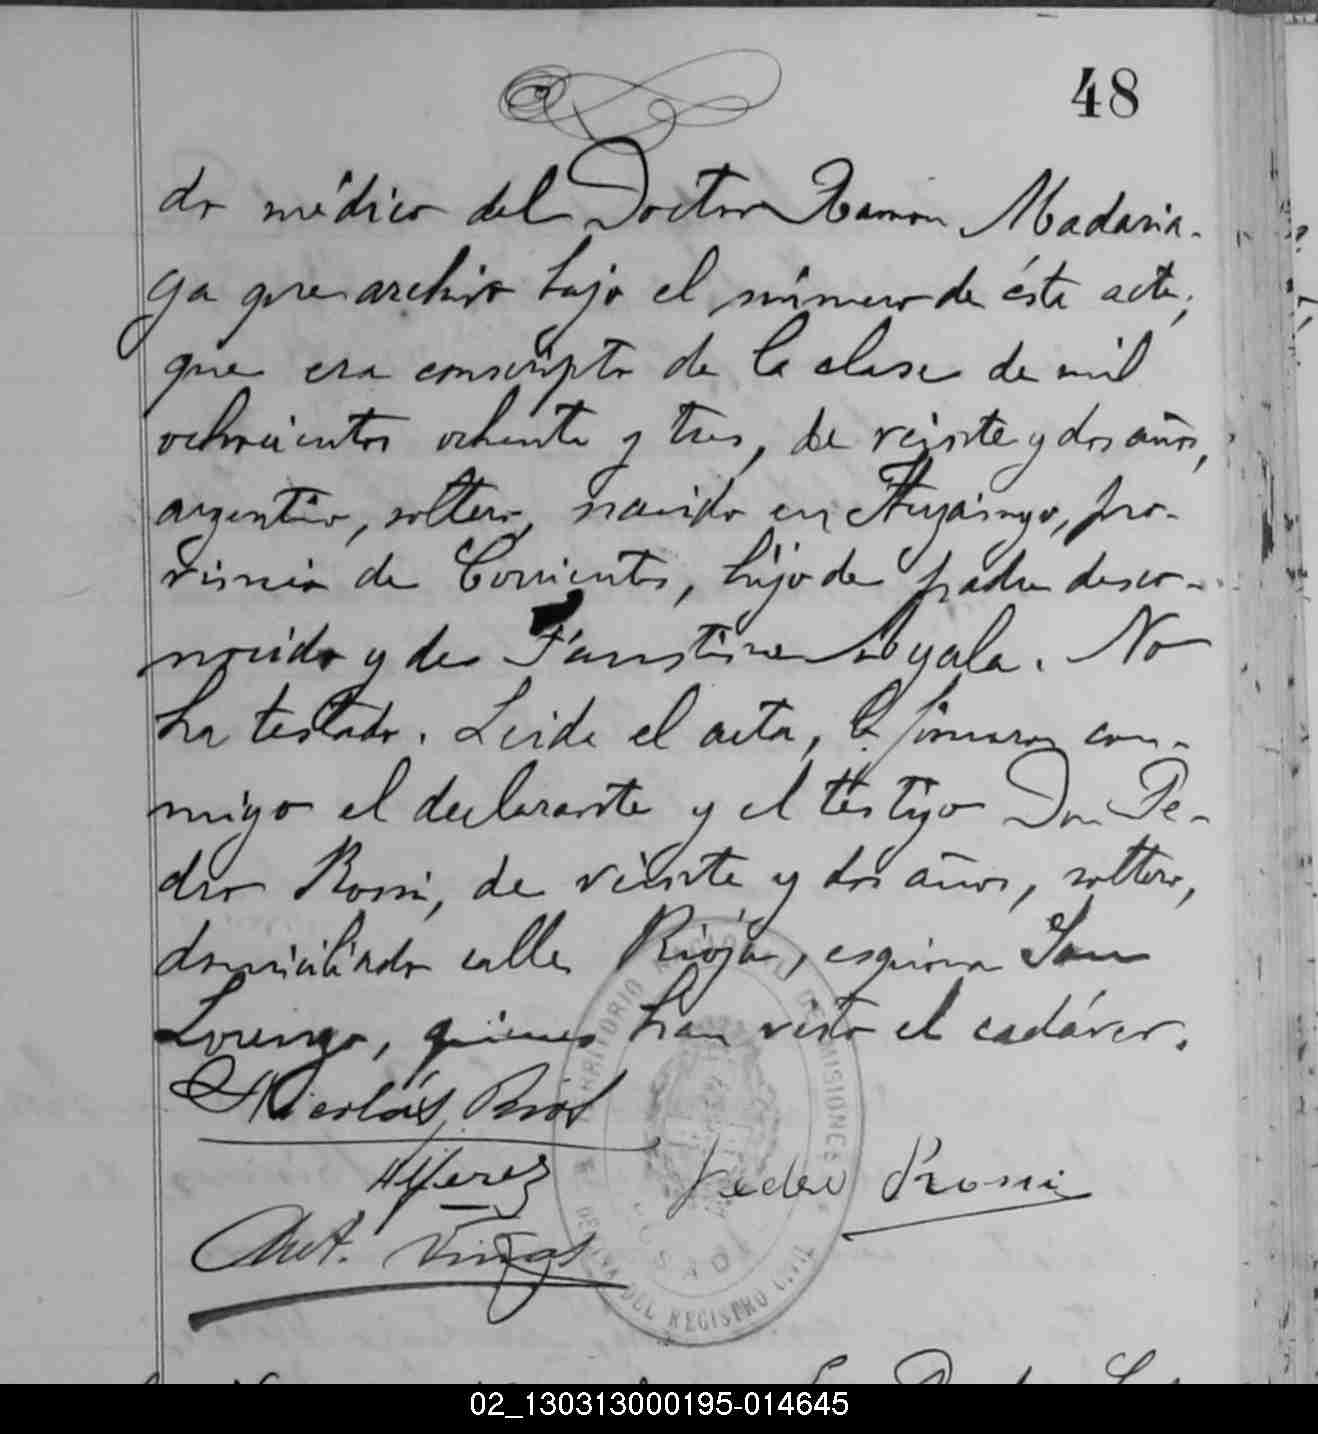 48
do médico del Doctor Ramon Madaria-
ga que archivo bajo el número de ésta acta,
que era conscripto de la clase de mil
ochocientos ochenta y tres, de veinte y dos años,
argentino, soltero, nacido en Ituzaingo, pro-
vincia de Corrientes, hijo de padre desco-
nocido y de Faustina Ayala. No
ha testado. Leida el acta, la firmaron con-
migo el declarante y el testigo Don Pe-
dro Rossi, de veinte y dos años, soltero,
domiciliado calle Rioja, esquina San
Lorenzo, quienes han visto el cadáver.
Nicolás
Alferez
Pedro Rossi
Ant.
TERRITORIO NACIONAL DE MISIONES
POSADAS
DEL REGISTRO CIVIL
02_130313000195-014645